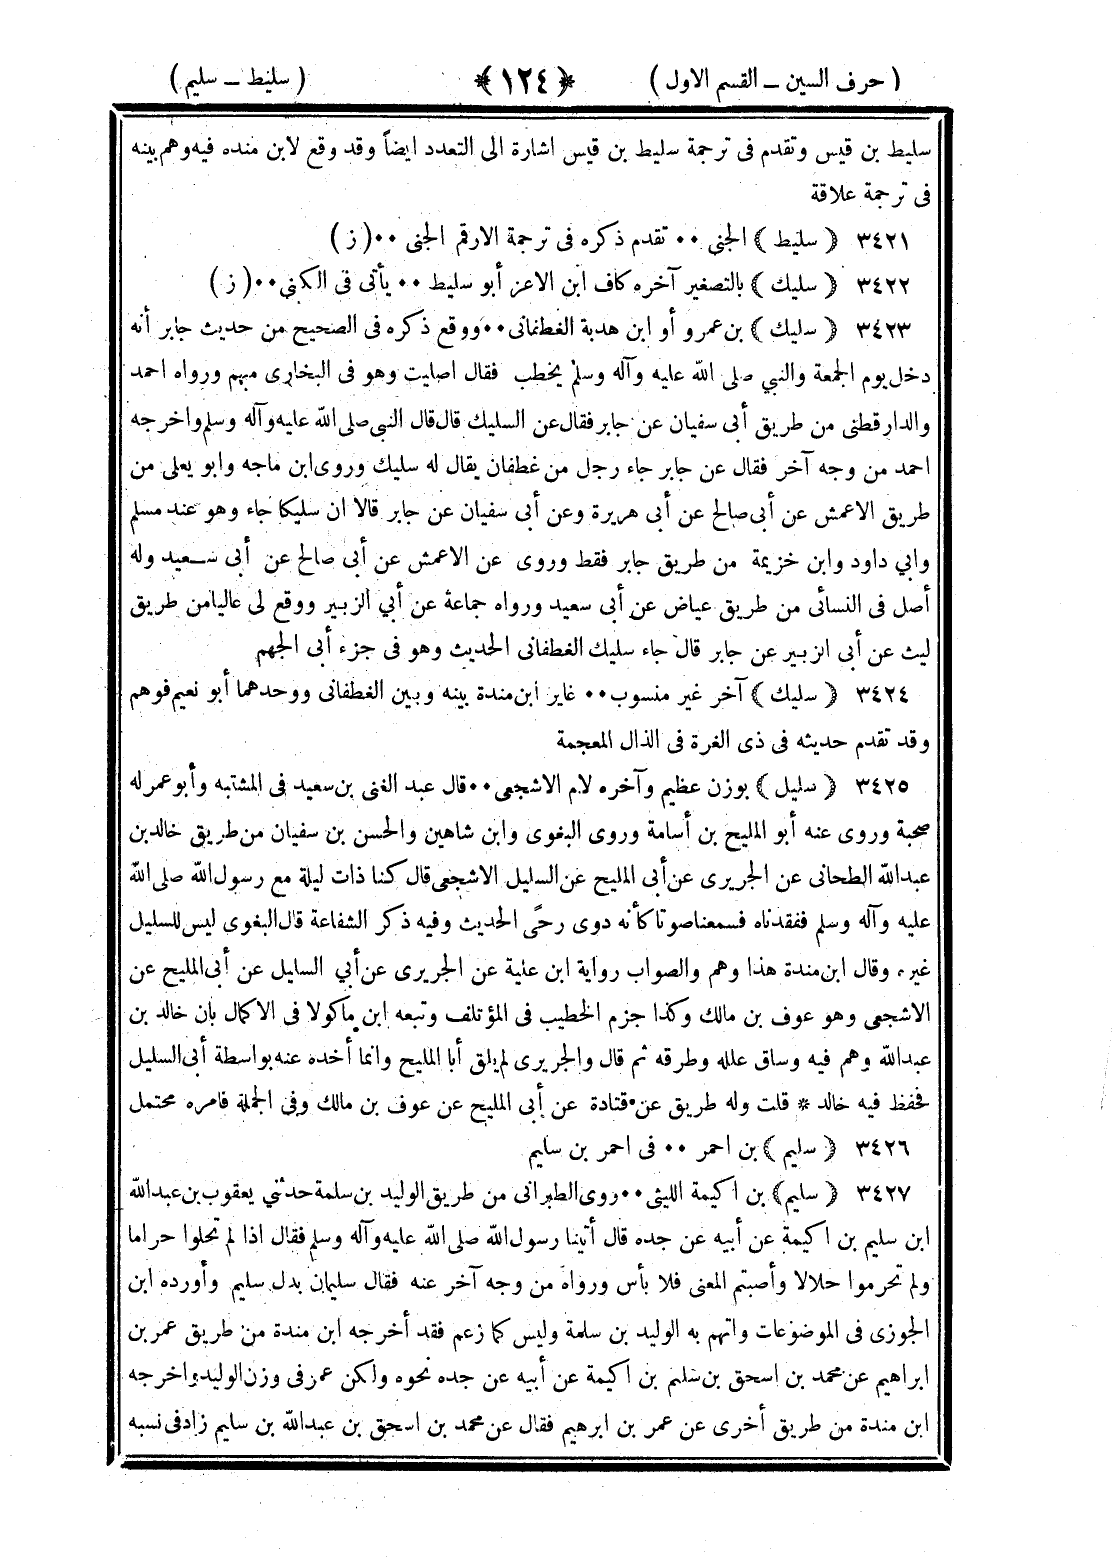 ( حرف السين ـ القسم الاول ) ﴿ ١٢٤ ﴾ ( سليط ـ سليم )
سليط بن قيس وتقدم فى ترجمة سليط بن قيس اشارة الى التعدد ايضاً وقد وقع لابن منده فيه وهم بينه
فى ترجمة علاقة
٣٤٢١ ﴿ سليط ﴾ الجني ٠٠ تقدم ذكره فى ترجمة الارقم الجنى ٠٠ ( ز )
٣٤٢٢ ﴿ سليك ﴾ بالتصغير آخره كاف ابن الاعز أبو سليط ٠٠ يأتى فى الكنى ٠٠ ( ز )
٣٤٢٣ ﴿ سليك ﴾ بن عمرو أو ابن هدبة الغطفانى ٠٠ ووقع ذكره فى الصحيح من حديث جابر أنه
دخل يوم الجمعة والنبي صلى الله عليه وآله وسلم يخطب فقال اصليت وهو فى البخارى مبهم ورواه احمد
والدارقطنى من طريق أبى سفيان عن جابر فقال عن السليك قال قال النبي صلى الله عليه وآله وسلم واخرجه
احمد من وجه آخر فقال عن جابر جاء رجل من غطفان يقال له سليك وروى ابن ماجه وابو يعلى من
طريق الاعمش عن أبى صالح عن أبى هريرة وعن أبى سفيان عن جابر قالا ان سليكا جاء وهو عند مسلم
وابي داود وابن خزيمة من طريق جابر فقط وروى عن الاعمش عن أبى صالح عن أبى سـعيد وله
أصل فى النسائى من طريق عياض عن أبى سعيد ورواه جماعة عن أبي الزبير ووقع لى عاليا من طريق
ليث عن أبى الزبير عن جابر قال جاء سليك الغطفانى الحديث وهو فى جزء أبى الجهم
٣٤٢٤ ﴿ سليك ﴾ آخر غير منسوب ٠٠ غاير ابن مندة بينه وبين الغطفانى ووحدهما أبو نعيم فوهم
وقد تقدم حديثه فى ذى الغرة فى الذال المعجمة
٣٤٢٥ ﴿ سليل ﴾ بوزن عظيم وآخره لام الاشجعى ٠٠ قال عبد الغنى بن سعيد فى المشتبه وأبو عمر له
صحبة وروى عنه أبو المليح بن أسامة وروى البغوى وابن شاهين والحسن بن سفيان من طريق خالد بن
عبدالله الطحانى عن الجريرى عن أبى المليح عن السليل الاشجعى قال كنا ذات ليلة مع رسول الله صلى الله
عليه وآله وسلم ففقدناه فسمعنا صوتا كأنه دوى رحًى الحديث وفيه ذكر الشفاعة قال البغوى ليس للسليل
غيره وقال ابن مندة هذا وهم والصواب رواية ابن علية عن الجريرى عن أبي السليل عن أبى المليح عن
الاشجعى وهو عوف بن مالك وكذا جزم الخطيب فى المؤتلف وتبعه ابن ماكولا فى الاكمال بان خالد بن
عبدالله وهم فيه وساق علله وطرقه ثم قال والجريرى لم يلق أبا المليح وانما أخذه عنه بواسطة أبى السليل
فحفظ فيه خالد * قلت وله طريق عن قتادة عن أبى المليح عن عوف بن مالك وفى الجملة فامره محتمل
٣٤٢٦ ﴿ سليم ﴾ بن احمر ٠٠ فى احمر بن سليم
٣٤٢٧ ﴿ سليم ﴾ بن اكيمة الليثى ٠٠ روى الطبرانى من طريق الوليد بن سلمة حدثني يعقوب بن عبدالله
ابن سليم بن اكيمة عن أبيه عن جده قال أتينا رسول الله صلى الله عليه وآله وسلم فقال اذا لم تحلوا حراما
ولم تحرموا حلالا وأصبتم المعنى فلا بأس ورواه من وجه آخر عنه فقال سليمان بدل سليم وأورده ابن
الجوزى فى الموضوعات واتهم به الوليد بن سلمة وليس كما زعم فقد أخرجه ابن مندة من طريق عمر بن
ابراهيم عن محمد بن اسحق بن سليم بن اكيمة عن أبيه عن جده نحوه ولكن عمر فى وزن الوليد واخرجه
ابن مندة من طريق أخرى عن عمر بن ابرهيم فقال عن محمد بن اسحق بن عبدالله بن سليم زاد فى نسبه